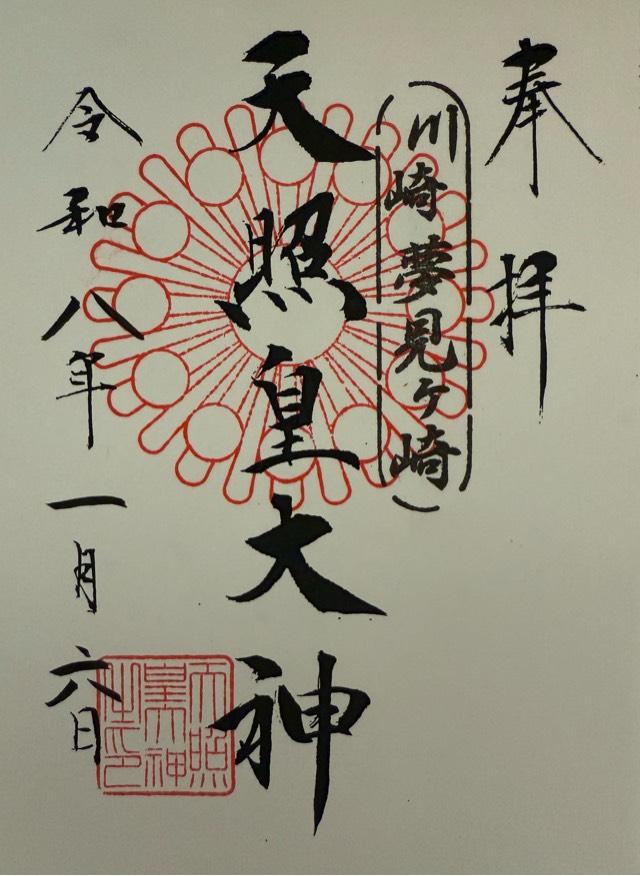 奉拝
川崎夢見ヶ崎
天照皇大神
令和八年一月六日
天照
皇大神
之印